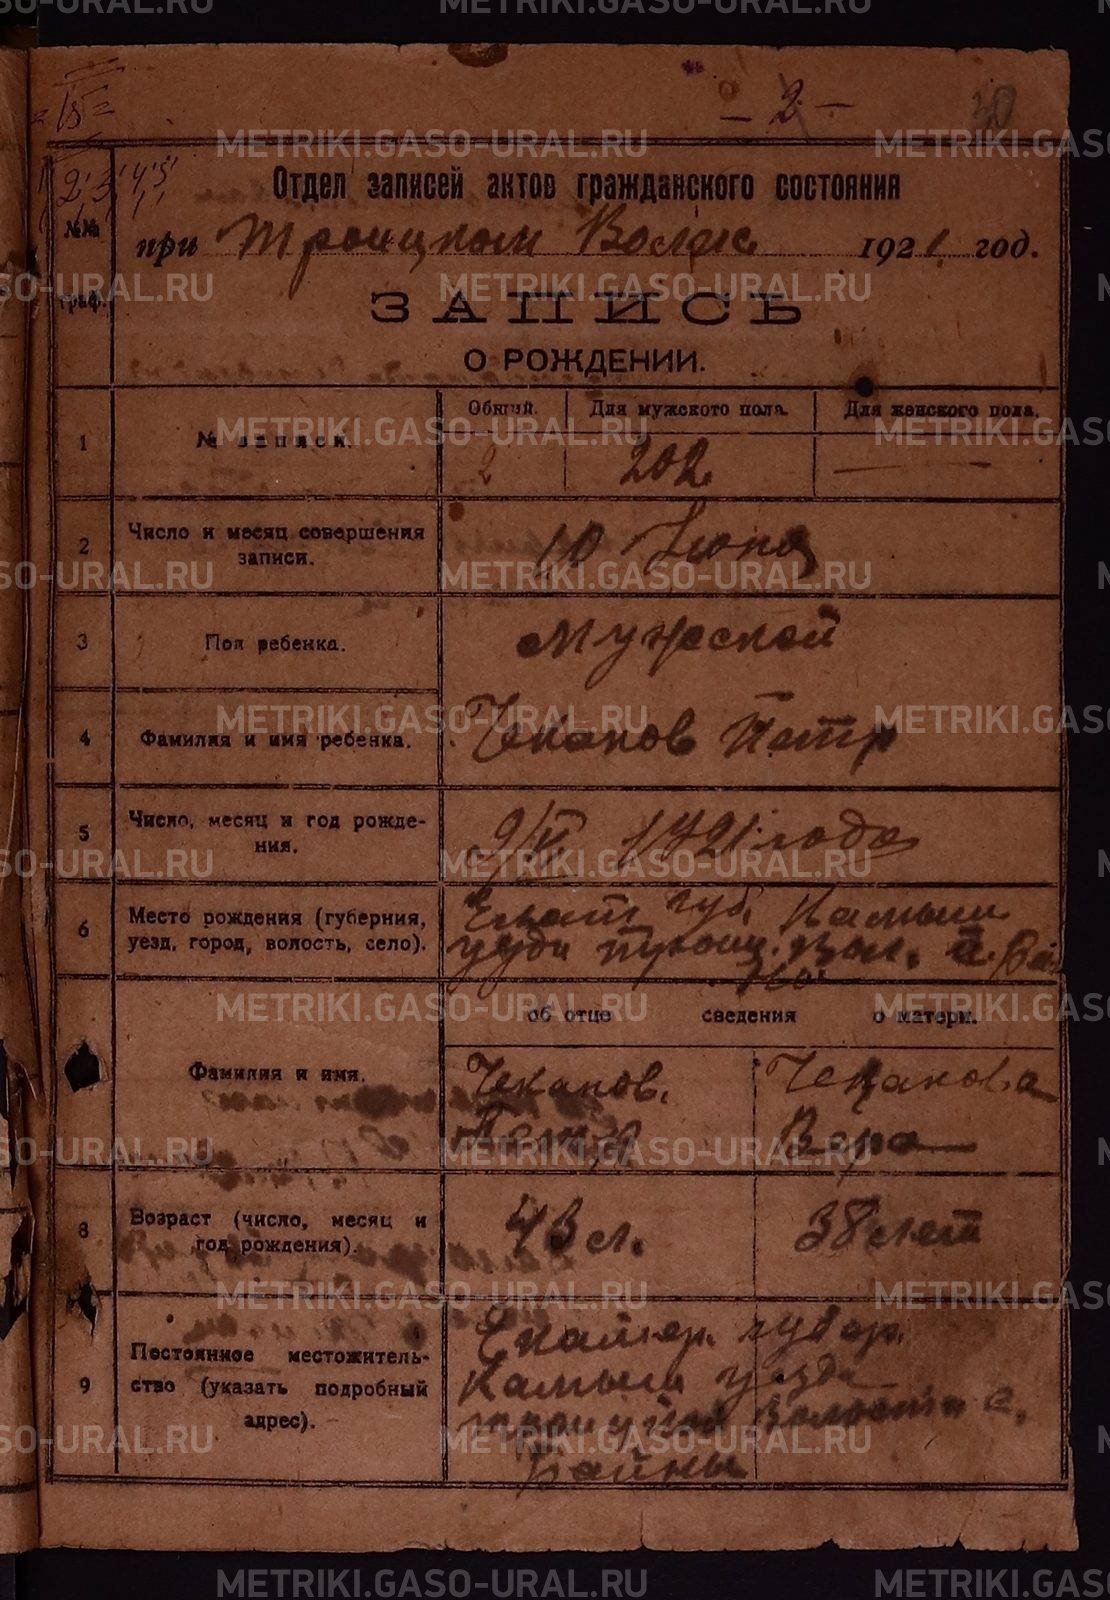 METRIKI.GASO-URAL.RU
- 2 -
30
= 15 =
2 3 4 5
Отдел записей актов гражданского состояния
при Троицком Волзс 1921 год.
№№ граф.
ЗАПИСЬ
О РОЖДЕНИИ.
1 № записи.
Общий. Для мужского пола. Для женского пола.
2 202 —
2 Число и месяц совершения записи.
10 Июня
3 Пол ребенка.
Мужской
4 Фамилия и имя ребенка.
Чекаков Петр
5 Число, месяц и год рождения.
9/VI 1921 года
6 Место рождения (губерния, уезд, город, волость, село).
Екат губ. Камыш.
уезда Троиц. вол. с.
Фамилия и имя.
об отце сведения о матери.
Чекаков. Чекакова
Петр Вера
8 Возраст (число, месяц и год рождения).
43 л. 38 лет
9 Постоянное местожительство (указать подробный адрес).
Екатер. губер.
Камыш уезда
троицкой волости с.